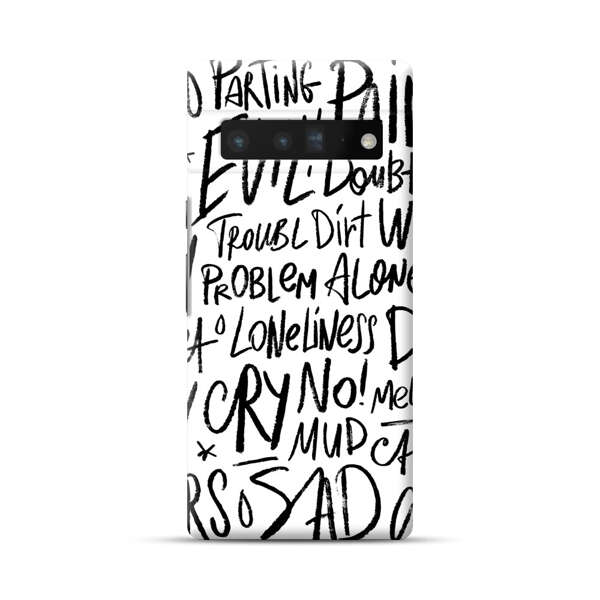 PARTING PAI
EVIL! Doubt
TROUBL Dirt W
PROBLEM ALONE
LONELINESS D
CRY NO! Mel
MUD CA
RS SAD